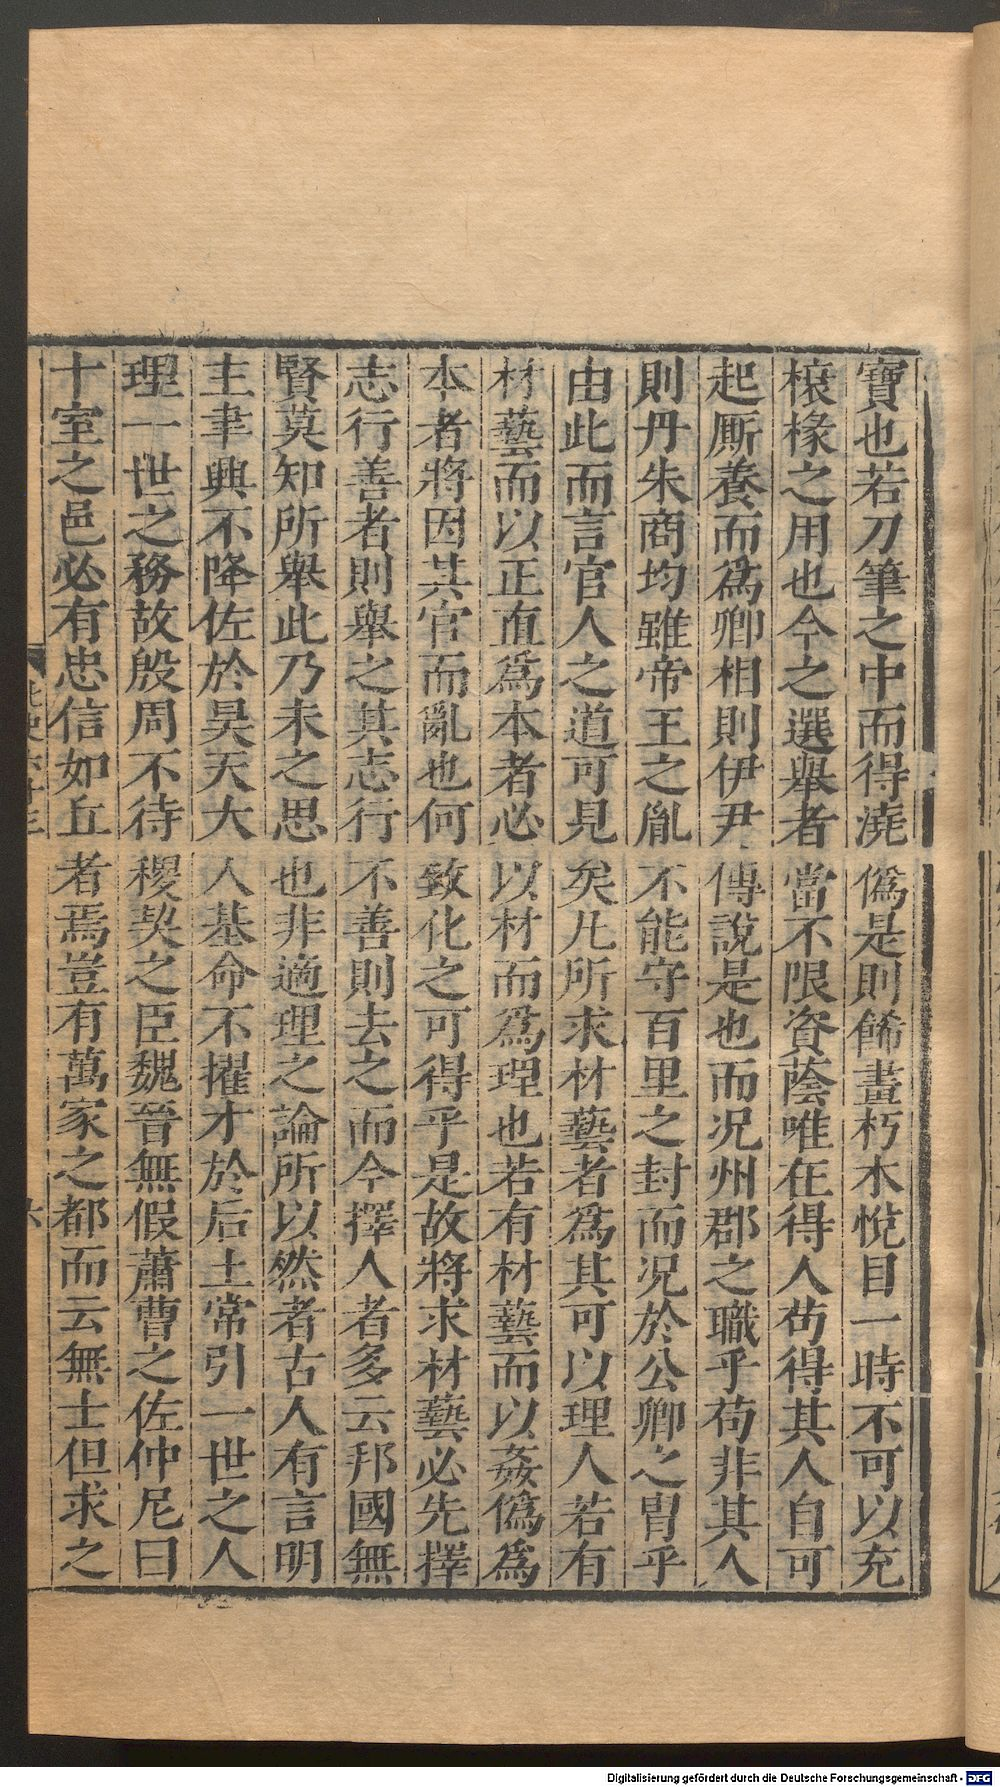 寶也若刀筆之中而得澆僞是則餙畫朽木悅目一時不可以充
榱椽之用也今之選舉者當不限資蔭唯在得人苟得其人自可
起厮養而爲卿相則伊尹傅說是也而况州郡之職乎苟非其人
則丹朱商均雖帝王之胤不能守百里之封而况於公卿之胄乎
由此而言官人之道可見矣凡所求材藝者爲其可以理人若有
材藝而以正直爲本者必以材而爲理也若有材藝而以姦僞爲
本者將因其官而亂也何致化之可得乎是故將求材藝必先擇
志行善者則舉之其志行不善則去之而今擇人者多云邦國無
賢莫知所舉此乃未之思也非適理之論所以然者古人有言明
主聿興不降佐於昊天大人基命不擢才於后土常引一世之人
理一世之務故殷周不待稷契之臣魏晉無假蕭曹之佐仲尼曰
十室之邑必有忠信如丘者焉豈有萬家之都而云無士但求之
Digitalisierung gefördert durch die Deutsche Forschungsgemeinschaft - DFG